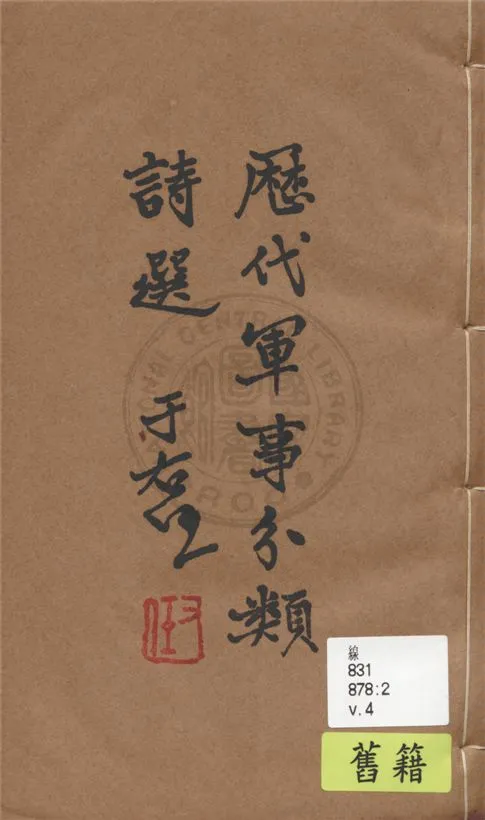 歷代軍事分類
詩選 于右任
線
831
878:2
v.4
舊籍